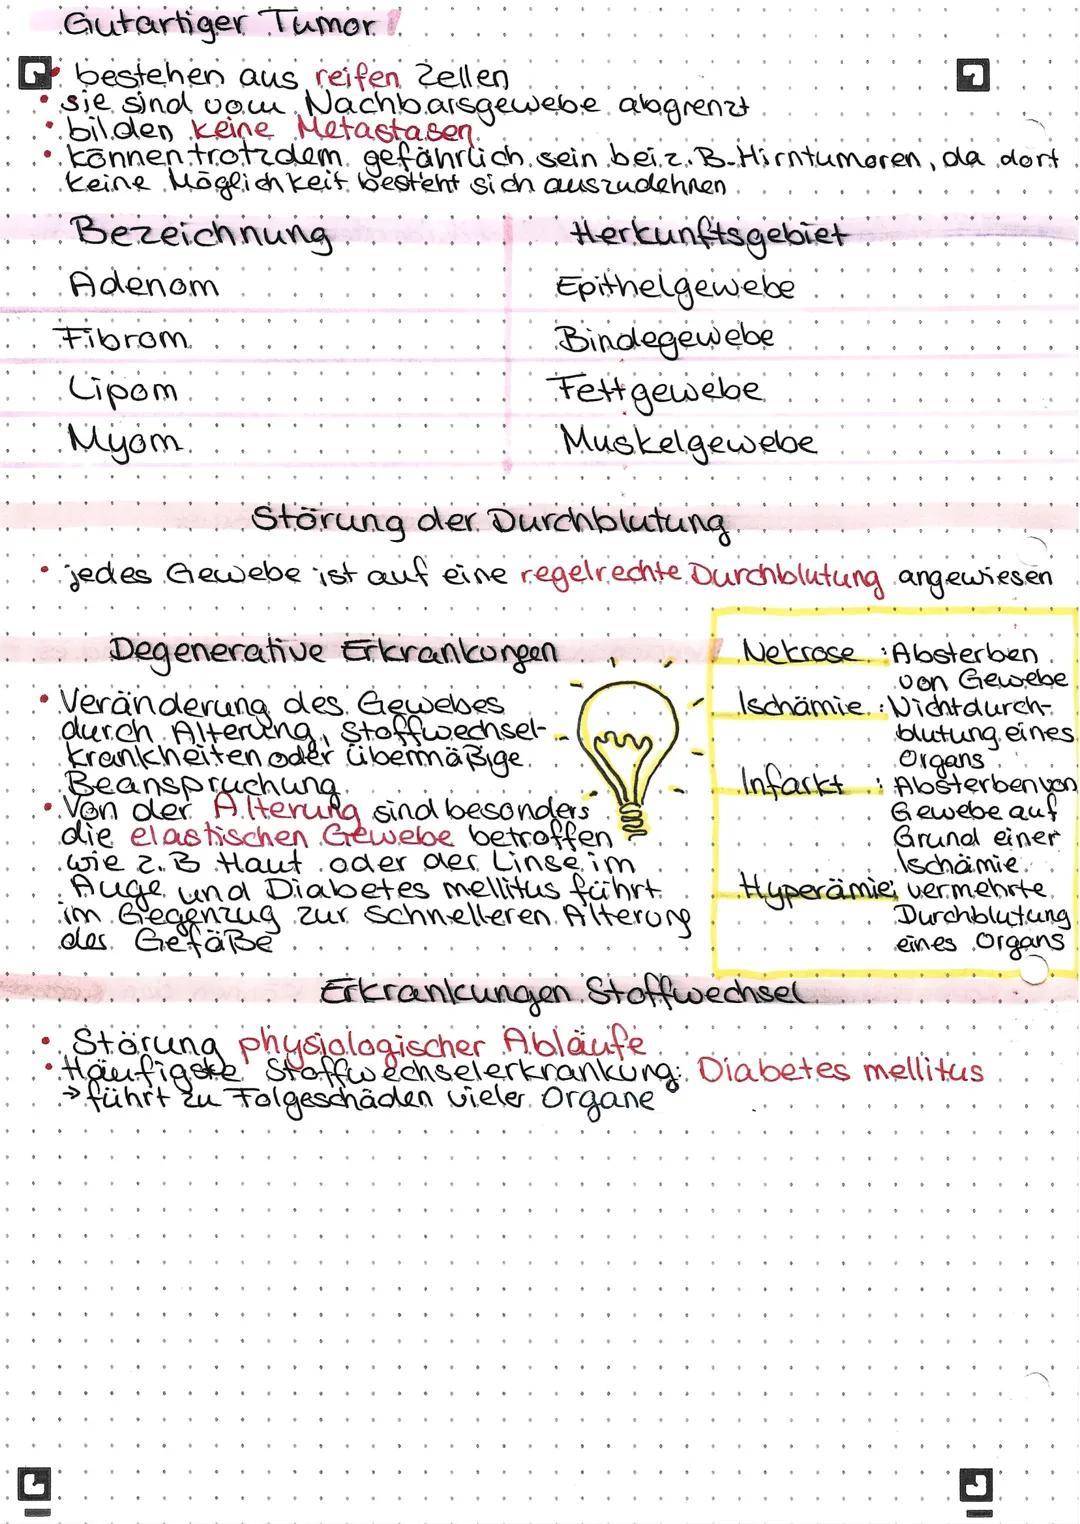 Gutartiger Tumor
• bestehen aus reifen Zellen
• sie sind vom Nachbarsgewebe abgrenzt
• bilden keine Metastasen
• können trotzdem gefährlich sein bei z.B. Hirntumoren, da dort
keine Möglichkeit besteht sich auszudehnen
Bezeichnung Herkunftsgebiet
Adenom Epithelgewebe
Fibrom Bindegewebe
Lipom Fettgewebe
Myom Muskelgewebe
Störung der Durchblutung
• jedes Gewebe ist auf eine regelrechte Durchblutung angewiesen
Degenerative Erkrankungen
• Veränderung des Gewebes
durch Alterung, Stoffwechsel-
krankheiten oder übermäßige
Beanspruchung
• Von der Alterung sind besonders
die elastischen Gewebe betroffen
wie z.B Haut oder der Linse im
Auge und Diabetes mellitus führt
im Gegenzug zur schnelleren Alterung
der Gefäße
Nekrose : Absterben
von Gewebe
Ischämie : Nichtdurch-
blutung eines
Organs
Infarkt : Absterben von
Gewebe auf
Grund einer
Ischämie
Hyperämie: vermehrte
Durchblutung
eines Organs
Erkrankungen Stoffwechsel
• Störung physiologischer Abläufe
• Häufigste Stoffwechselerkrankung: Diabetes mellitus
→ führt zu Folgeschäden vieler Organe